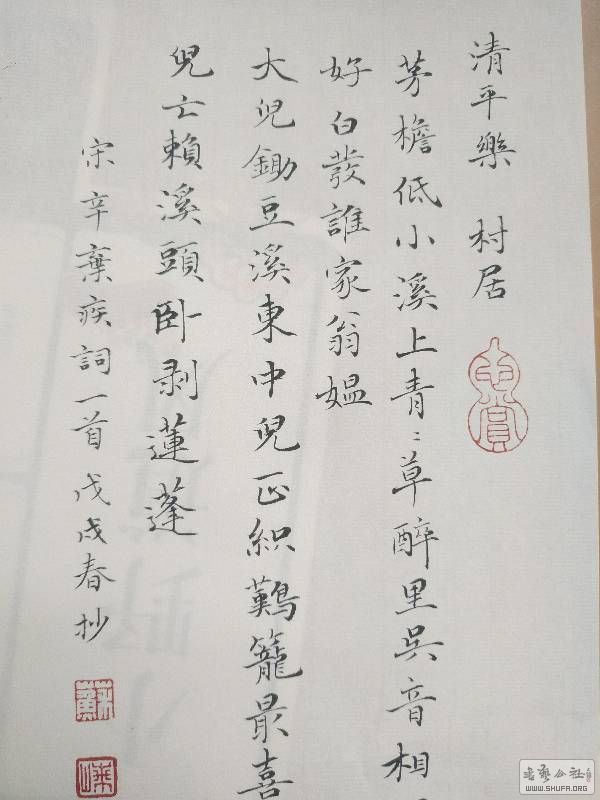 清平樂 村居
茅檐低小溪上青〻草醉里吳音相
好白發誰家翁媼
大兒鋤豆溪東中兒正織鷄籠最喜
兒亡賴溪頭卧剥蓮蓬
宋辛棄疾詞一首戊戌春抄
WWW.SHUFA.ORG